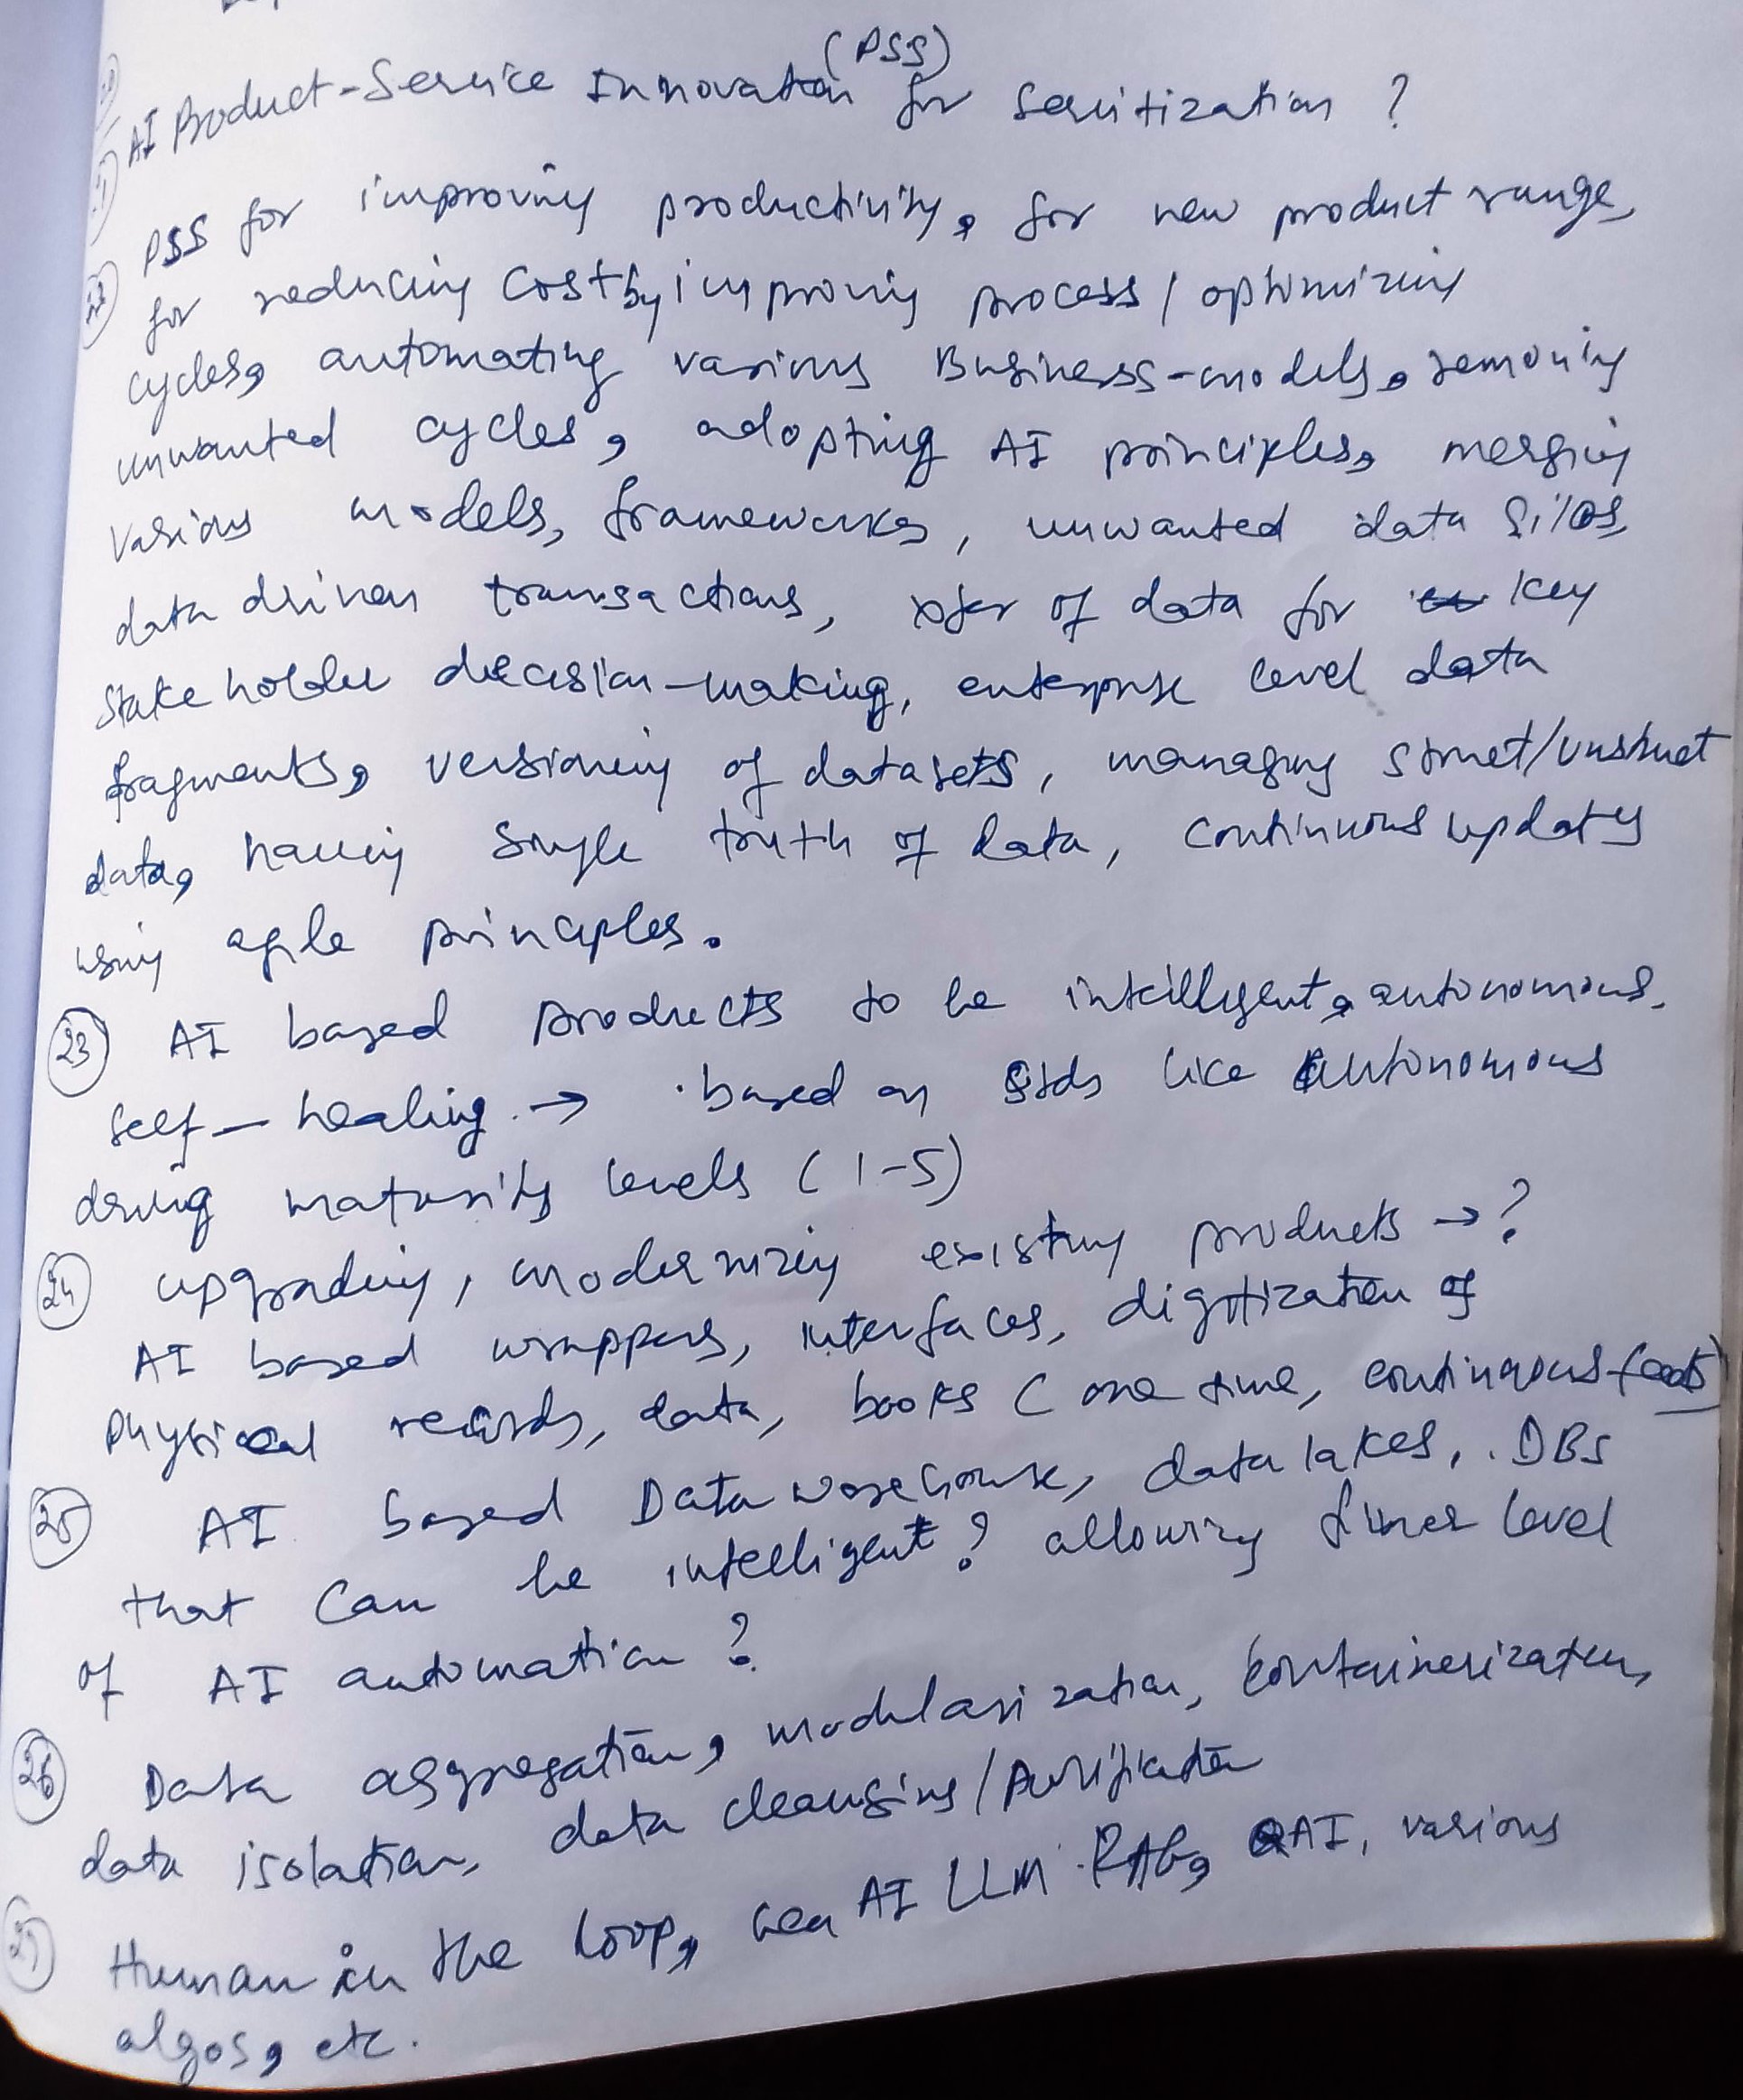 (PSS)
20 AI Product-Service Innovation for Servitization ?
21 PSS for improving productivity, for new product range,
22 for reducing cost by improving process / optimizing
cycles, automating various Business-models, removing
unwanted cycles, adopting AI principles, merging
various models, frameworks, unwanted data silos
data driven transactions, xfer of data for key
stakeholder decision-making, enterprise level data
fragments, versioning of datasets, managing struct/unstruct
data, having single truth of data, continous updates
using agile principles.
23 AI based products to be intelligent, autonomous.
self-healing. → based on stds like Autonomous
driving maturity levels (1-5)
24 upgrading, modernizing existing products → ?
AI based wrappers, interfaces, digitization of
physical records, data, books (one time, continous
25 AI based Data warehouse, data lakes, DBs
that can be intelligent? allowing finer level
of AI automation ?
26 Data aggregation, modularization, containerization,
data isolation, data cleansing/Purification
27 Human in the loop, Gen AI LLM RAG, QAI, various
algos, etc.